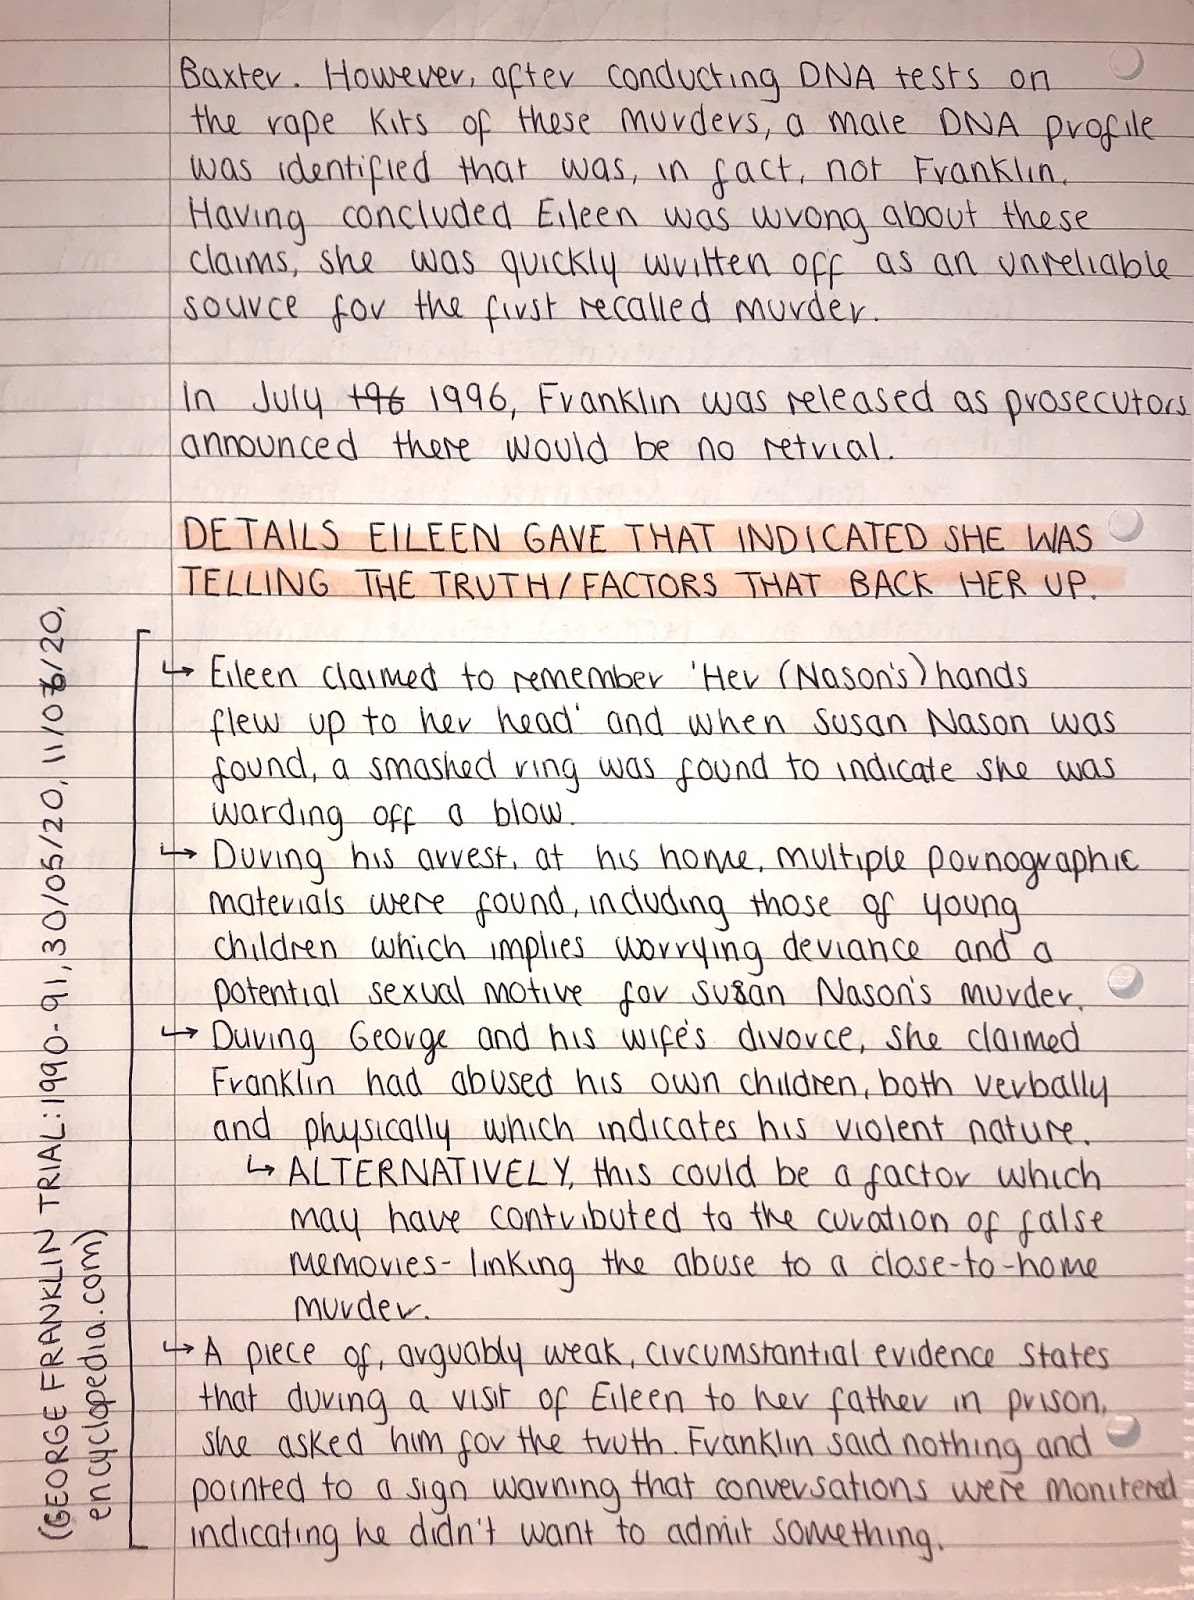 Baxter. However, after conducting DNA tests on
the rape kits of these murders, a male DNA profile
was identified that was, in fact, not Franklin.
Having concluded Eileen was wrong about these
claims, she was quickly written off as an unreliable
source for the first recalled murder.
In July 196 1996, Franklin was released as prosecutors
announced there would be no retrial.
DETAILS EILEEN GAVE THAT INDICATED SHE WAS
TELLING THE TRUTH/FACTORS THAT BACK HER UP.
↳ Eileen claimed to remember 'Her (Nason's) hands
flew up to her head' and when Susan Nason was
found, a smashed ring was found to indicate she was
warding off a blow.
↳ During his arrest, at his home, multiple pornographic
materials were found, including those of young
children which implies worrying deviance and a
potential sexual motive for Susan Nason's murder.
↳ During George and his wife's divorce, she claimed
Franklin had abused his own children, both verbally
and physically which indicates his violent nature.
↳ ALTERNATIVELY, this could be a factor which
may have contributed to the curation of false
memories- linking the abuse to a close-to-home
murder.
↳ A piece of, arguably weak, circumstantial evidence states
that during a visit of Eileen to her father in prison,
she asked him for the truth. Franklin said nothing and
pointed to a sign warning that conversations were monitered
indicating he didn't want to admit something.
(GEORGE FRANKLIN TRIAL:1990-91, 30/05/20, 11/06/20,
encyclopedia.com)